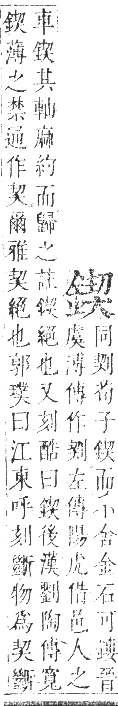 鍥
同剠荀子鍥而不舍金石可鏤晉
虞溥傳作剠左傳陽虎借邑人之
車鍥其軸麻約而歸之註鍥絕也又刻酷曰鍥後漢劉陶傳寬
鍥薄之禁通作契爾雅契絕也郭璞曰江東呼刻斷物爲契斷